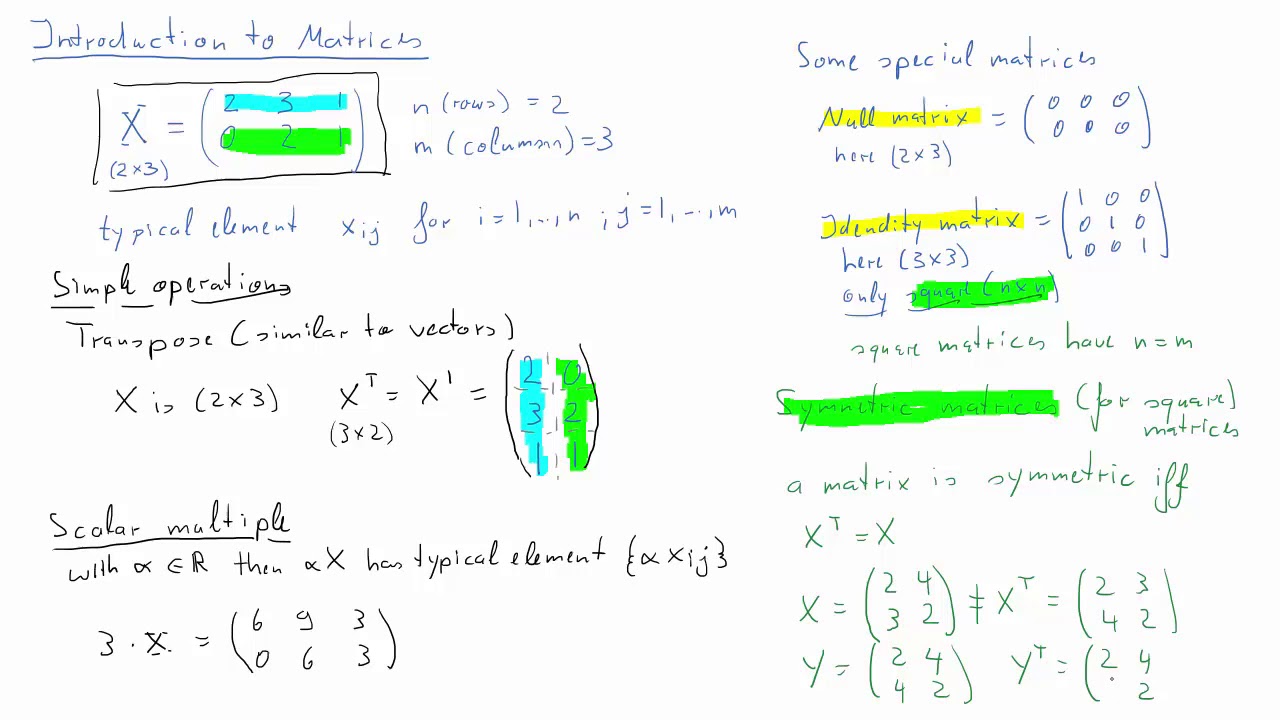 Introduction to Matrices
X = (2 3 1
0 2 1)
(2×3)
n (rows) = 2
m (columns) = 3
typical element xij for i=1,...,n ; j=1,...,m
Simple operations
Transpose (similar to vectors)
X is (2×3) X^T = X' = (2 0
3 2
1 1)
(3×2)
Scalar multiple
with α ∈ ℝ then αX has typical element {α xij}
3 · X = (6 9 3
0 6 3)
Some special matrices
Null matrix = (0 0 0
0 0 0)
here (2×3)
Idendity matrix = (1 0 0
0 1 0
0 0 1)
here (3×3)
only square (n×n)
square matrices have n=m
Symmetric matrices (for square)
matrices
a matrix is symmetric iff
X^T = X
X = (2 4
3 2) ≠ X^T = (2 3
4 2)
Y = (2 4
4 2) Y^T = (2 4
2